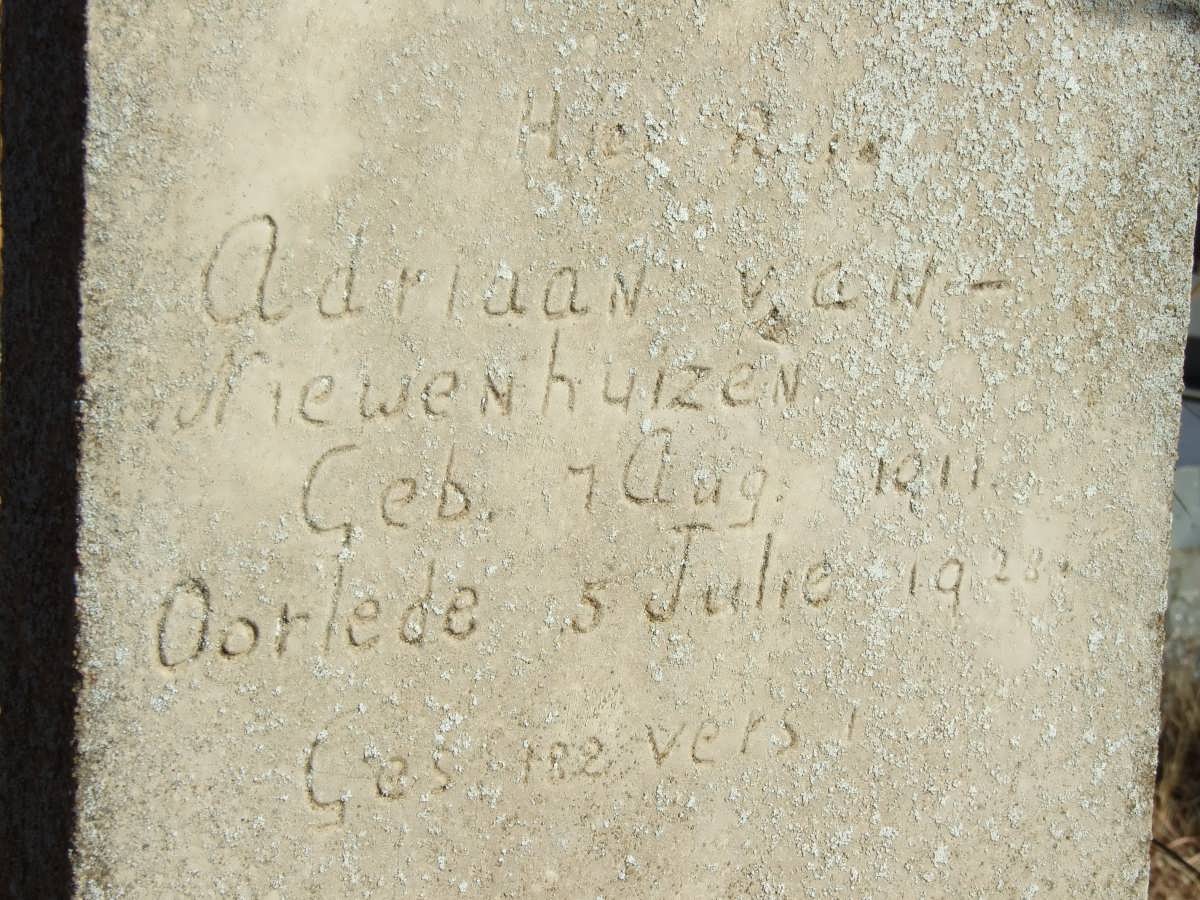 Hier Rus
Adriaan van-
Niewenhuizen
Geb. 7 Aug. 1911.
Oorlede 5 Julie 1928.
Ges 182 vers 1